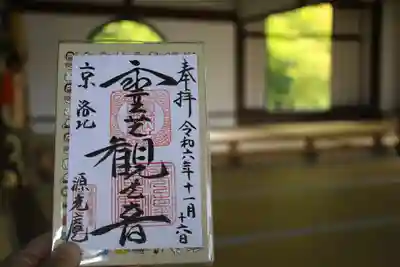 奉拝 令和六年十一月十六日
霊芝観世音
京 洛北 源光庵